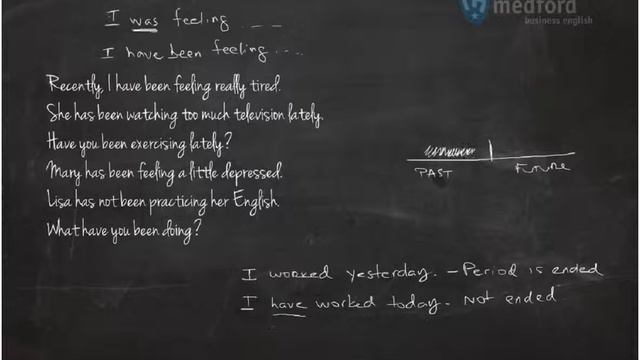 medford
business english
I was feeling ....
I have been feeling ....
Recently, I have been feeling really tired.
She has been watching too much television lately.
Have you been exercising lately?
Mary has been feeling a little depressed.
Lisa has not been practicing her English.
What have you been doing?
PAST FUTURE
I worked yesterday. - Period is ended
I have worked today - Not ended